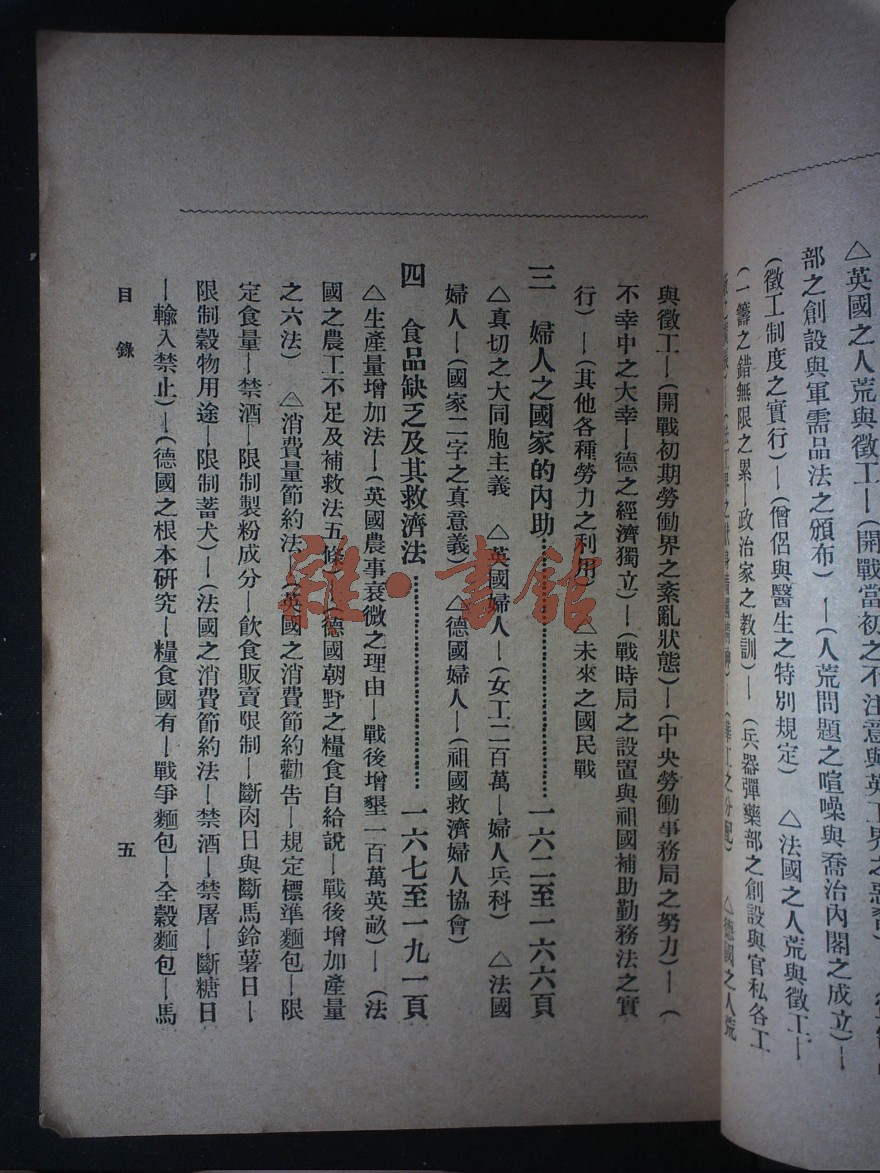 △英國之人荒與徵工—(開戰當初之不注意與英工界之惡習)
部之創設與軍需品法之頒布)—(人荒問題之喧噪與喬治內閣之成立)—
(徵工制度之實行)—(僧侶與醫生之特別規定) △法國之人荒與徵工—
(一籌之錯無限之累—政治家之教訓)—(兵器彈藥部之創設與官私各工
△德國之人荒
與徵工—(開戰初期勞働界之紊亂狀態)—(中央勞働事務局之努力)—(
不幸中之大幸—德之經濟獨立)—(戰時局之設置與祖國補助勤務法之實
行)—(其他各種勞力之利用)△未來之國民戰
三 婦人之國家的內助⋯⋯⋯⋯一六二至一六六頁
△真切之大同胞主義 △英國婦人—(女工二百萬—婦人兵科) △法國
婦人—(國家二字之真意義)△德國婦人—(祖國救濟婦人協會)
四 食品缺乏及其救濟法⋯⋯⋯⋯一六七至一九一頁
△生產量增加法—(英國農事衰微之理由—戰後增墾一百萬英畝)—(法
國之農工不足及補救法五條)(德國朝野之糧食自給說—戰後增加產量
之六法) △消費量節約法—(英國之消費節約勸告—規定標準麵包—限
定食量—禁酒—限制製粉成分—飲食販賣限制—斷肉日與斷馬鈴薯日—
限制穀物用途—限制蓄犬)—(法國之消費節約法—禁酒—禁屠—斷糖日
—輸入禁止)—(德國之根本研究—糧食國有—戰爭麵包—全穀麵包—馬
目錄 五
雜·書館